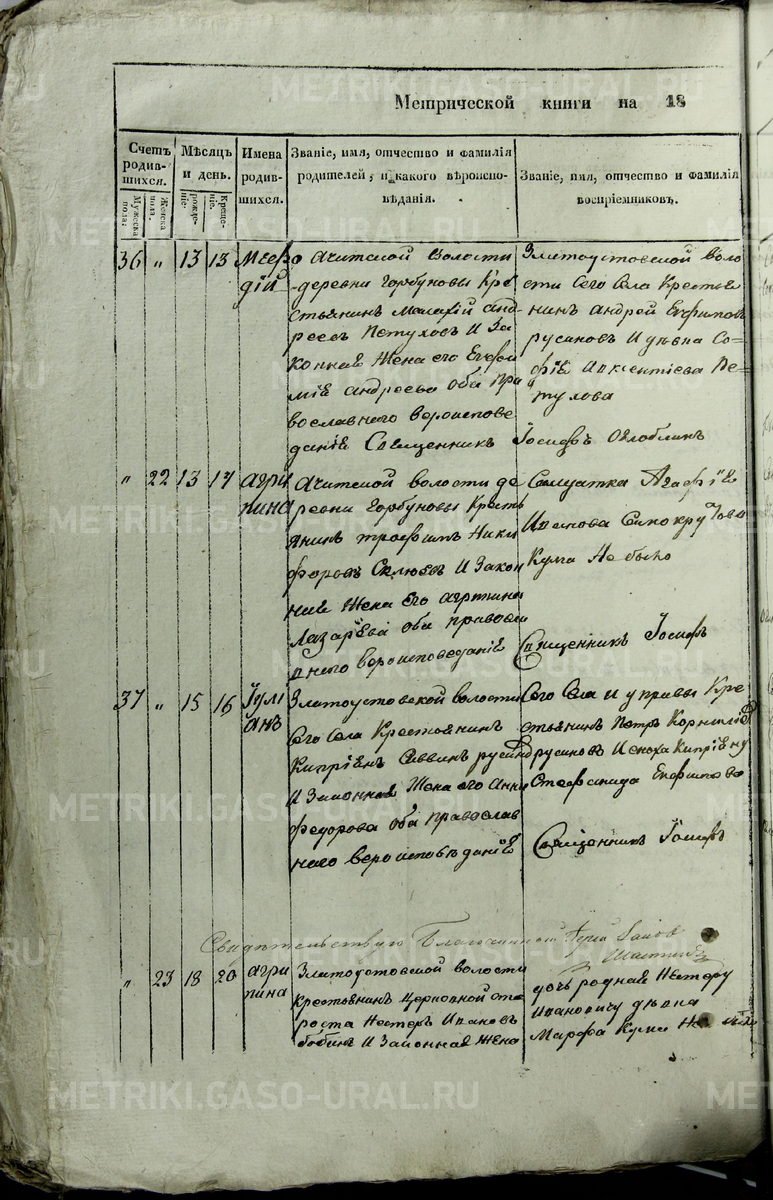 Метрической книги на 18
Счетъ родив-шихся.
Мужеска пола.
Женска пола.
Мѣсяцъ и день.
рожде-ніе.
Креще-ніе.
Имена родив-шихся.
Званіе, имя, отчество и фамилія родителей, и какого вѣроиспо-вѣданія.
Званіе, имя, отчество и фамилія воспріемниковъ.
36 „ 13 13 Меѳо
дій
Ачитской волости
деревни Горбуновы Кре
стьянинъ андре
евъ Петуховъ и За
конная Жена его Евфи
мія андреева оба пра
вославного вероиспове
данія Священникъ
Златоустовской воло
сти сего села Крестья
нинъ андрей Евфимовъ
русиновъ и девка Со
фія Пе
тухова
Іосифъ
„ 22 13 17 агри
пина
Ачитской волости де
ревни Горбуновы Кресть
янинъ трофимъ Ники
форовъ и Закон
ная Жена Его
Лазарева оба правосла
вного вероисповеданія
Агафія
Кума не было
Священникъ Іосифъ
37 „ 15 16 Іули
анъ
Златоустовской волости
сего села Крестьянинъ
Кипріянъ Саввинъ русино
и Законная Жена его Анна
федорова оба православ
наго вероисповѣданія
сего села и управы Кре
стьянинъ Петръ Корнилі
русиновъ
Стефанида Евфимова
Священникъ Іосифъ
Свидѣтельствую Благочинный Іерей
„ 23 18 20 агри
пина
Златоустовской волости
крестьянинъ Церковной ста
роста Нестеръ Ивановъ
и Законная Жена
дочь родная Нестеру
Ивановичу девка
Марфа Кума не было
METRIKI.GASO-URAL.RU